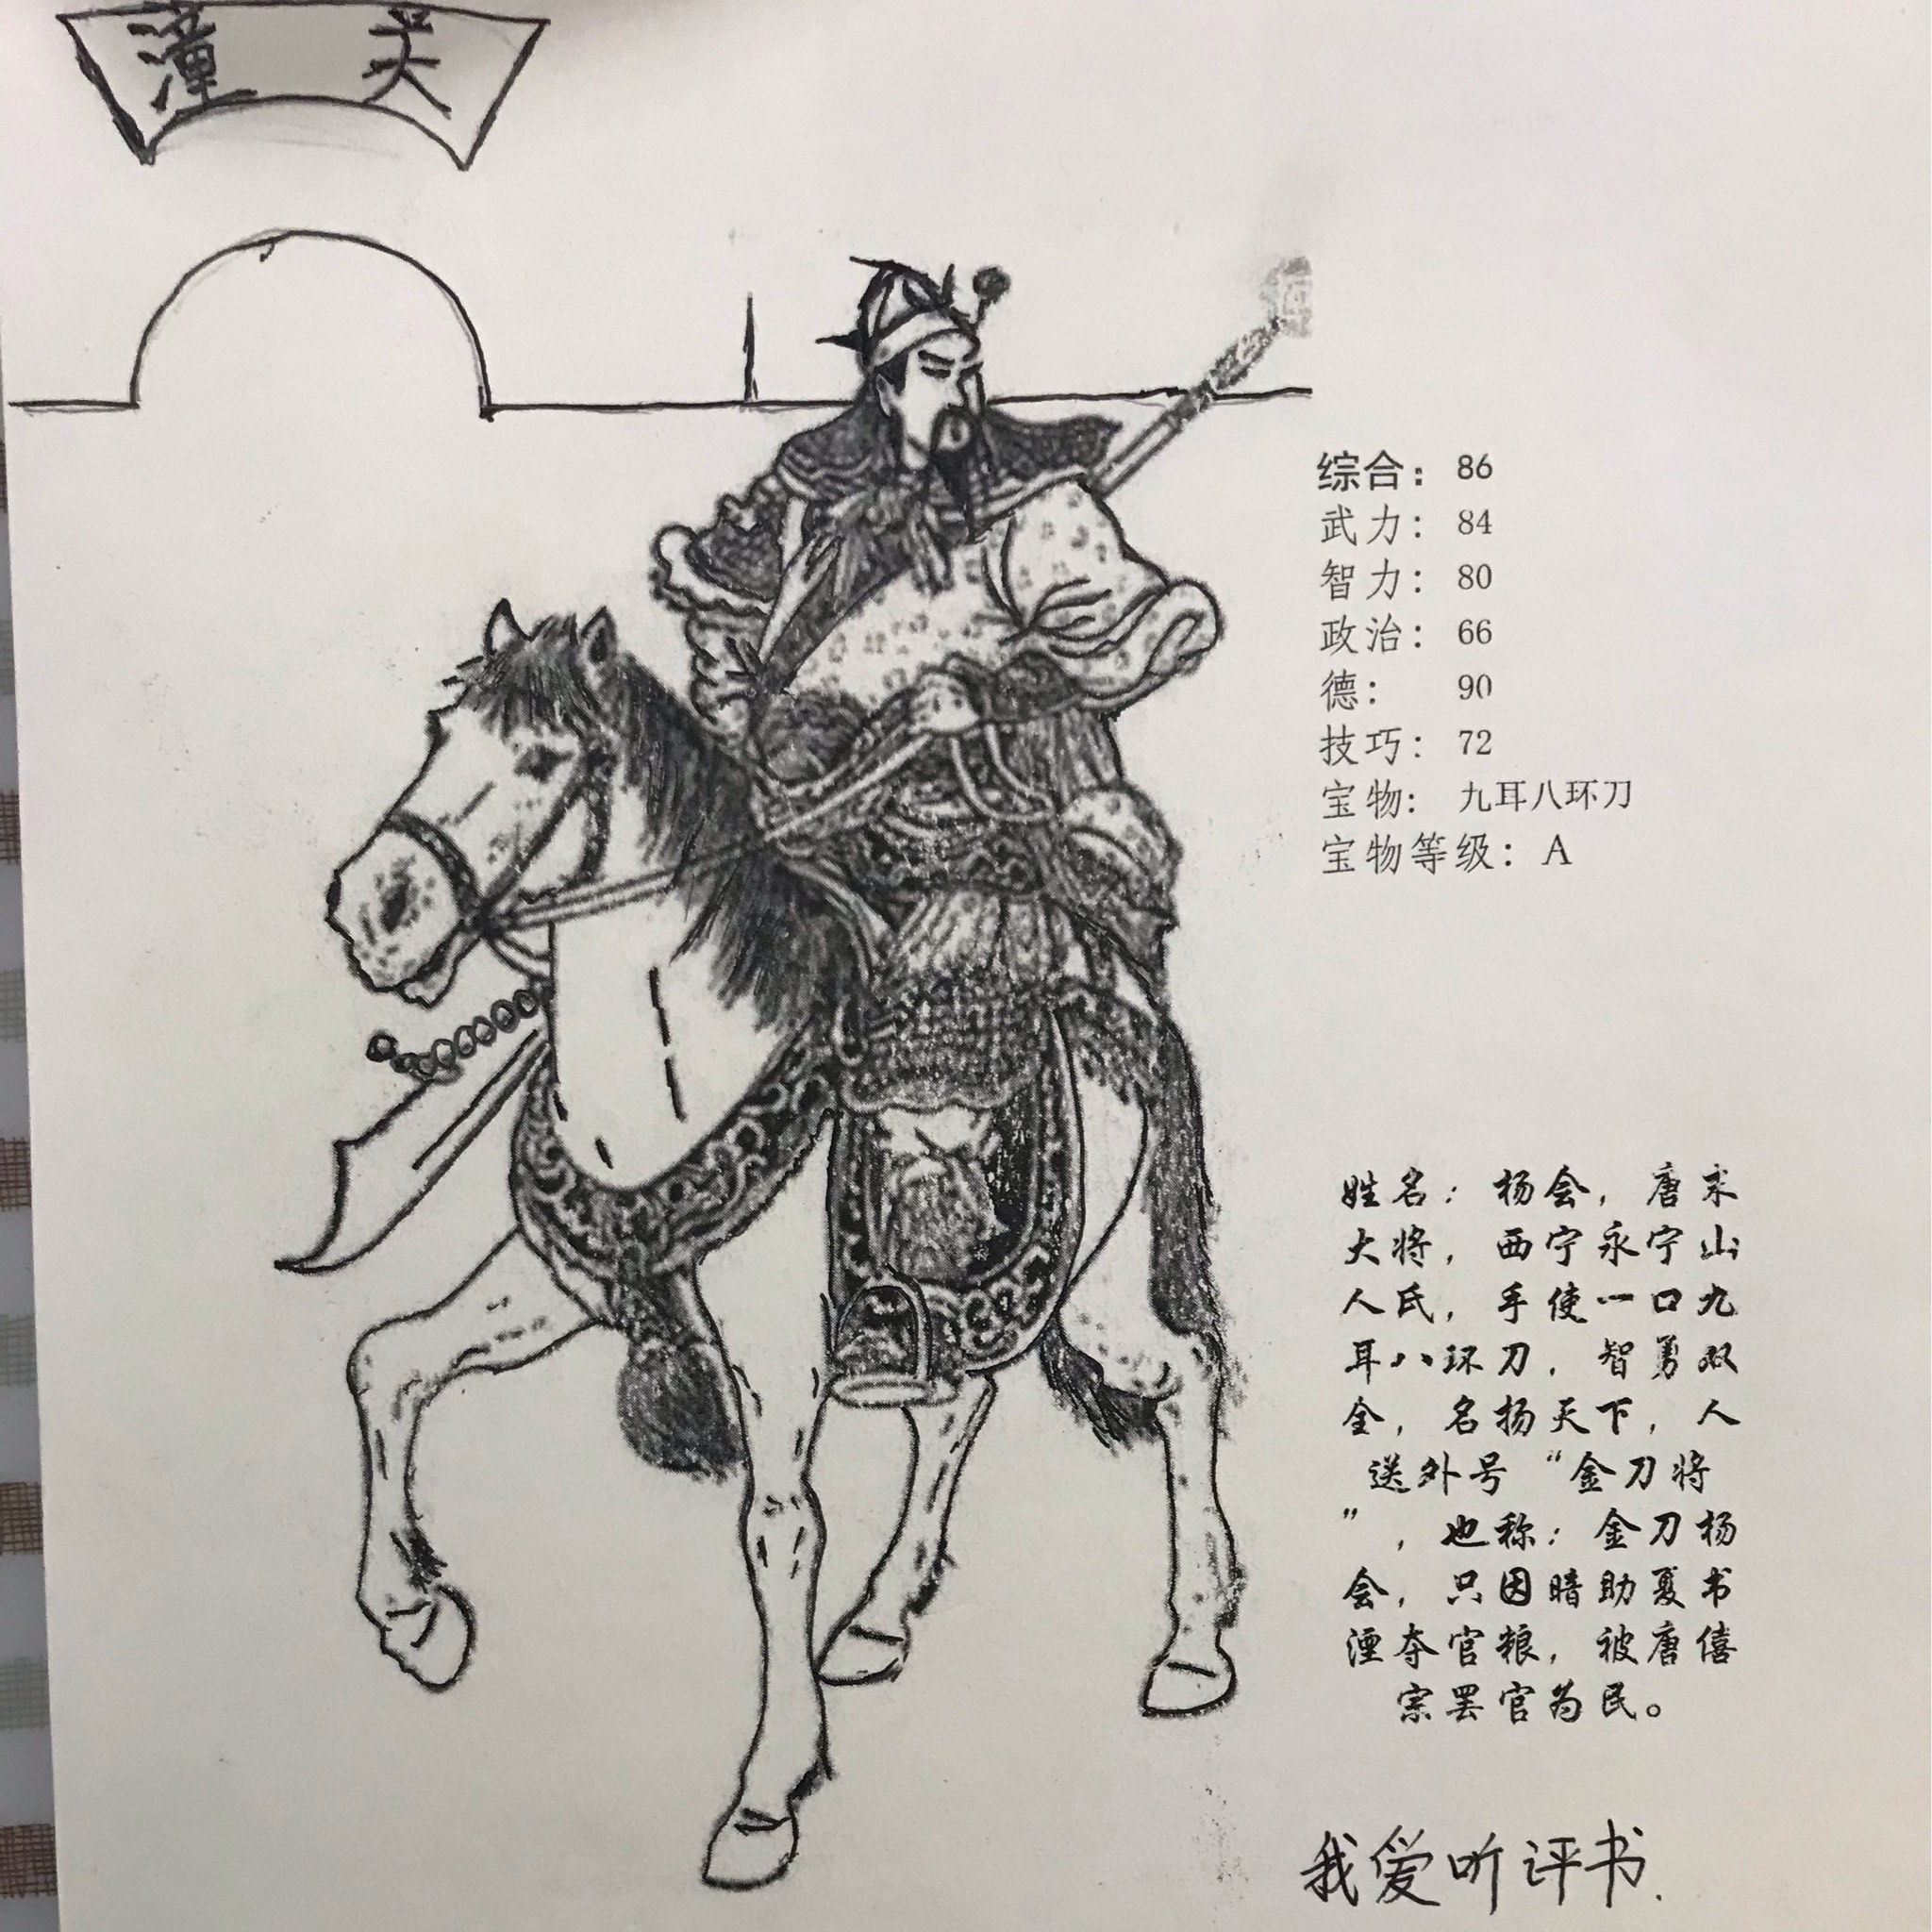 潼关
综合：86
武力：84
智力：80
政治：66
德：90
技巧：72
宝物：九耳八环刀
宝物等级：A
姓名：杨会，唐末
大将，西宁永宁山
人氏，手使一口九
耳八环刀，智勇双
全，名扬天下，人
送外号“金刀将
”，也称：金刀杨
会，只因暗助夏书
湮夺官粮，被唐僖
宗罢官为民。
我爱听评书.